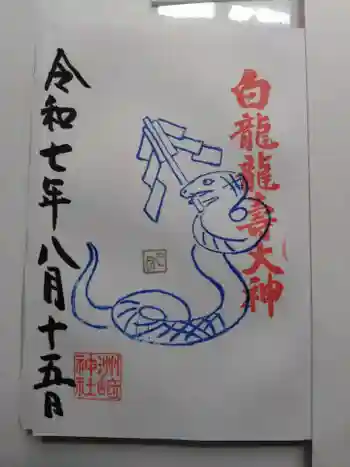 白龍龍壽大神
令和七年八月十五日
洲崎神社